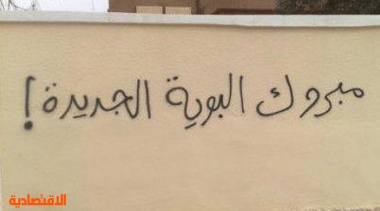 مبروك البوية الجديدة !
الاقتصادية